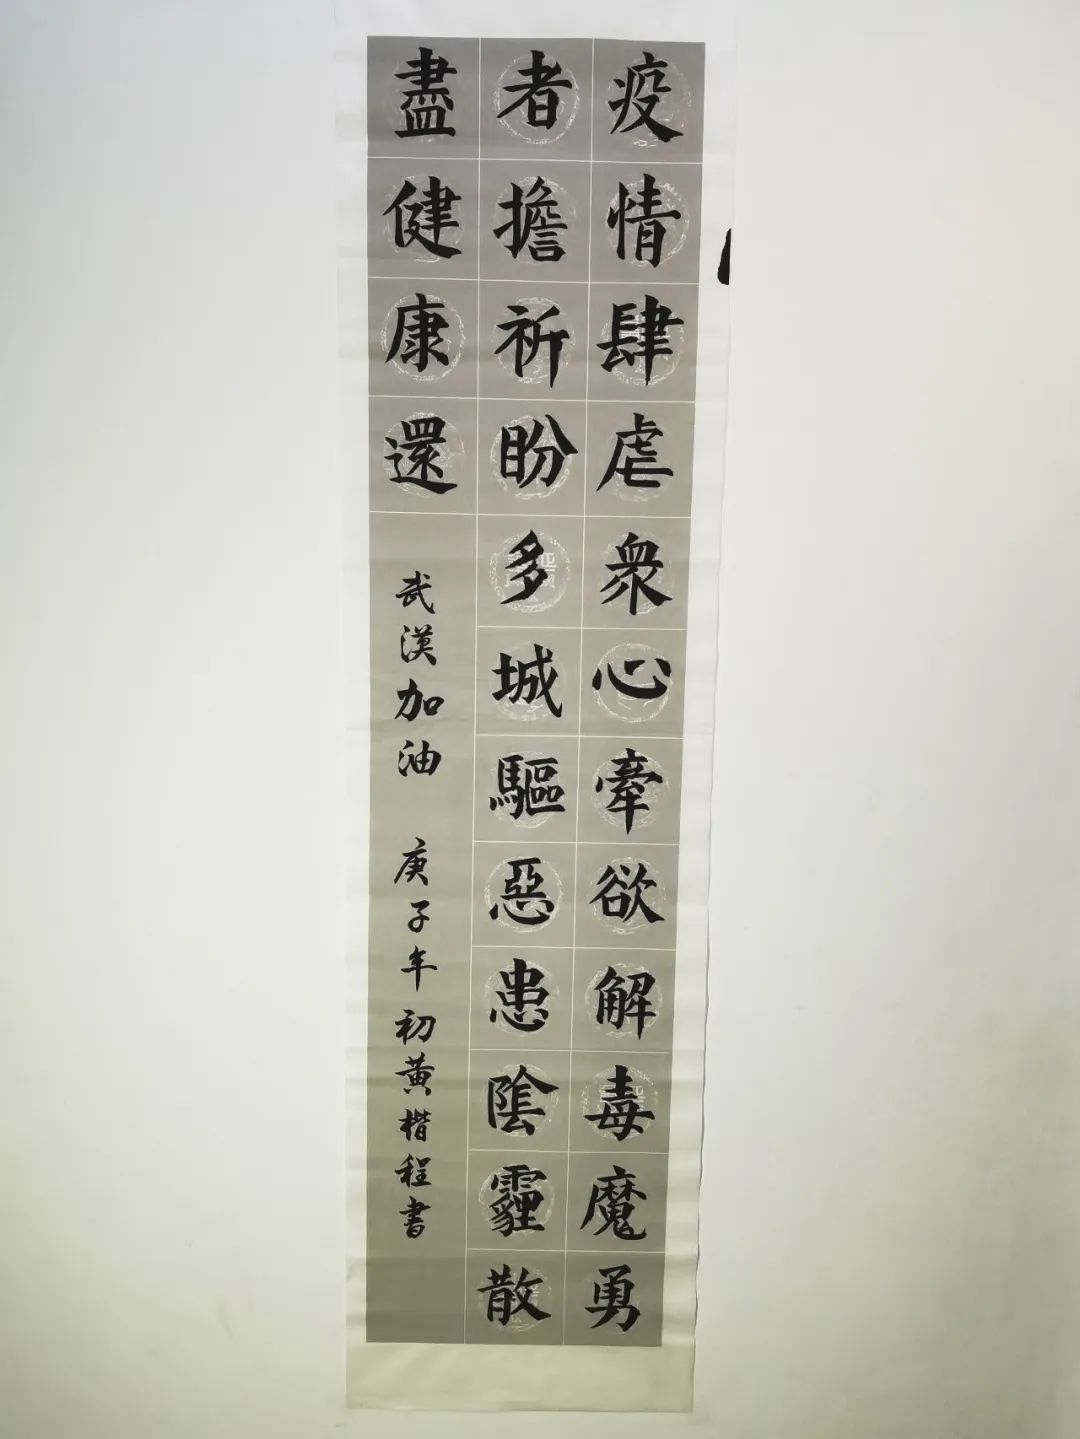 疫情肆虐衆心牽欲解毒魔勇
者擔祈盼多城驅惡患陰霾散
盡健康還
武漢加油 庚子年初黃楷程書